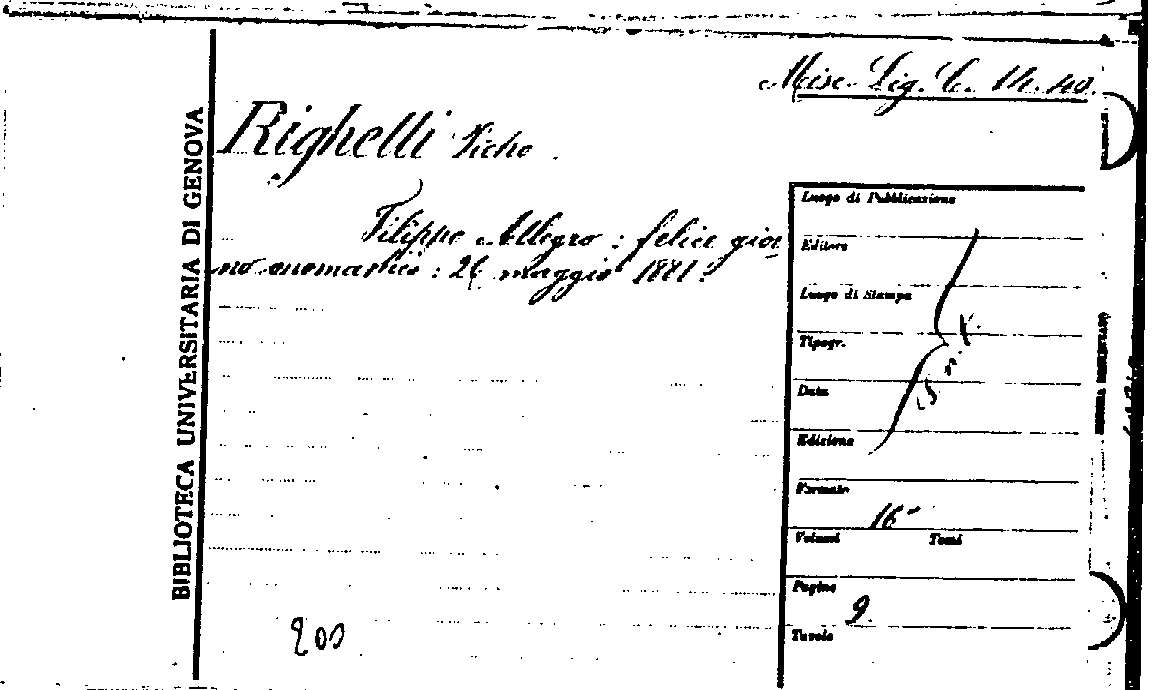 Misc. Lig. C. 14. 40.
BIBLIOTECA UNIVERSITARIA DI GENOVA
Righelli
Filippo Allegro : felice gior
no onomastico : 26 maggio 1881.
Luogo di Pubblicazione
Editore
Luogo di Stampa
Tipogr.
S. n. t.
Data
Edizione
Formato
16°
Volumi Tomi
Pagine
9.
Tavole
200